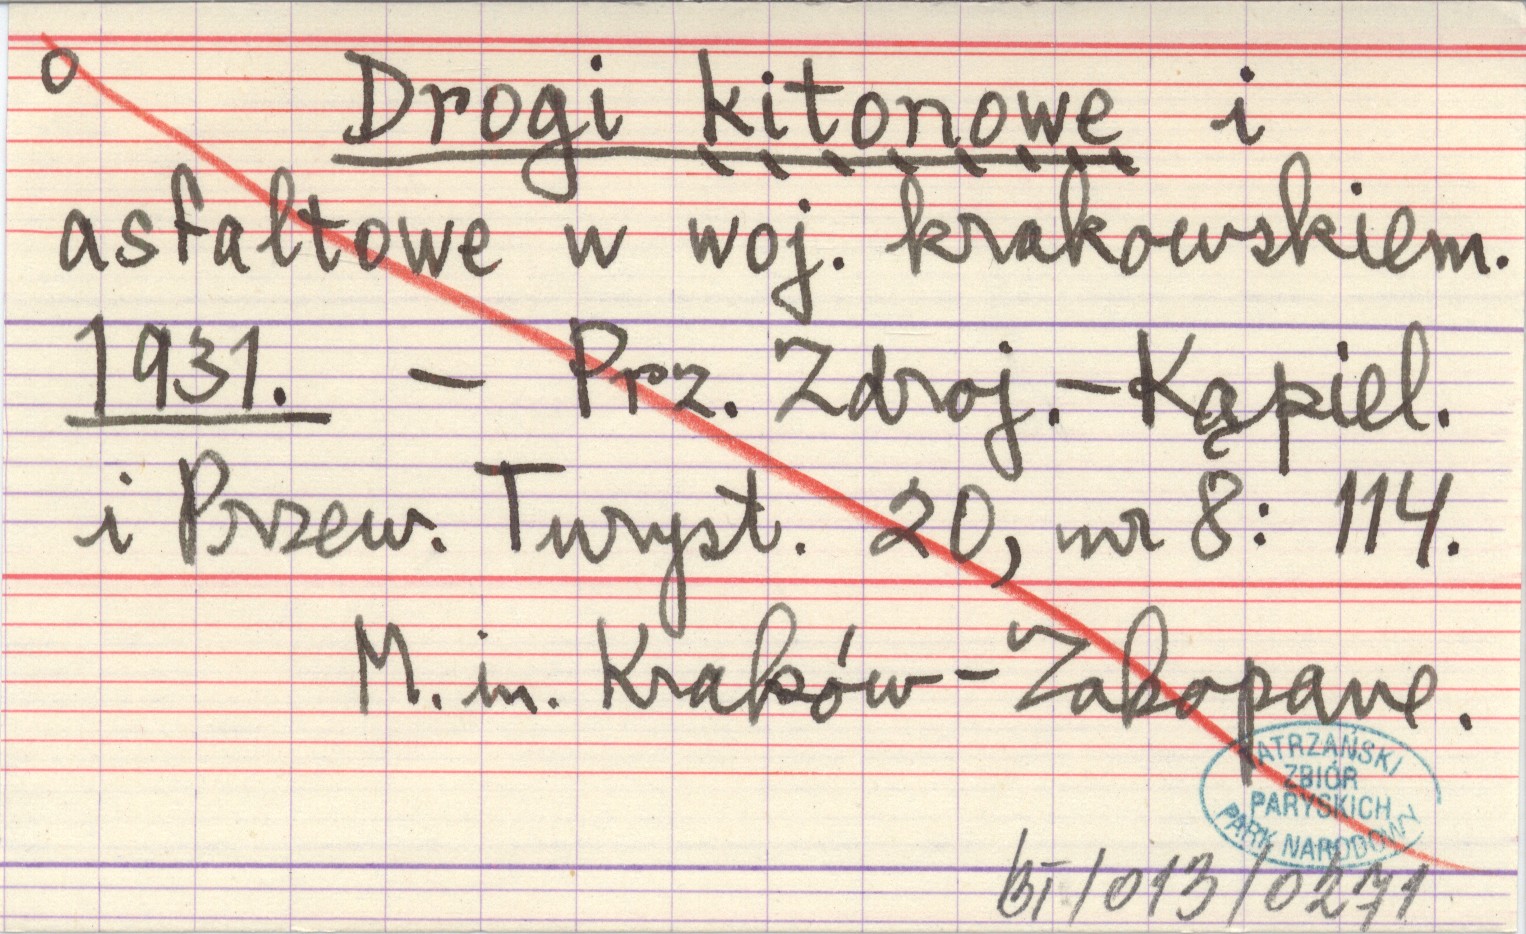 o Drogi kitonowe i
asfaltowe w woj. krakowskiem.
1931. – Prz. Zdroj.-Kąpiel.
i Przew. Turyst. 20, nr 8: 114.
M. in. Kraków-Zakopane.
TATRZAŃSKI
ZBIÓR
PARYSKICH
PARK NARODOWY
BI/013/0271